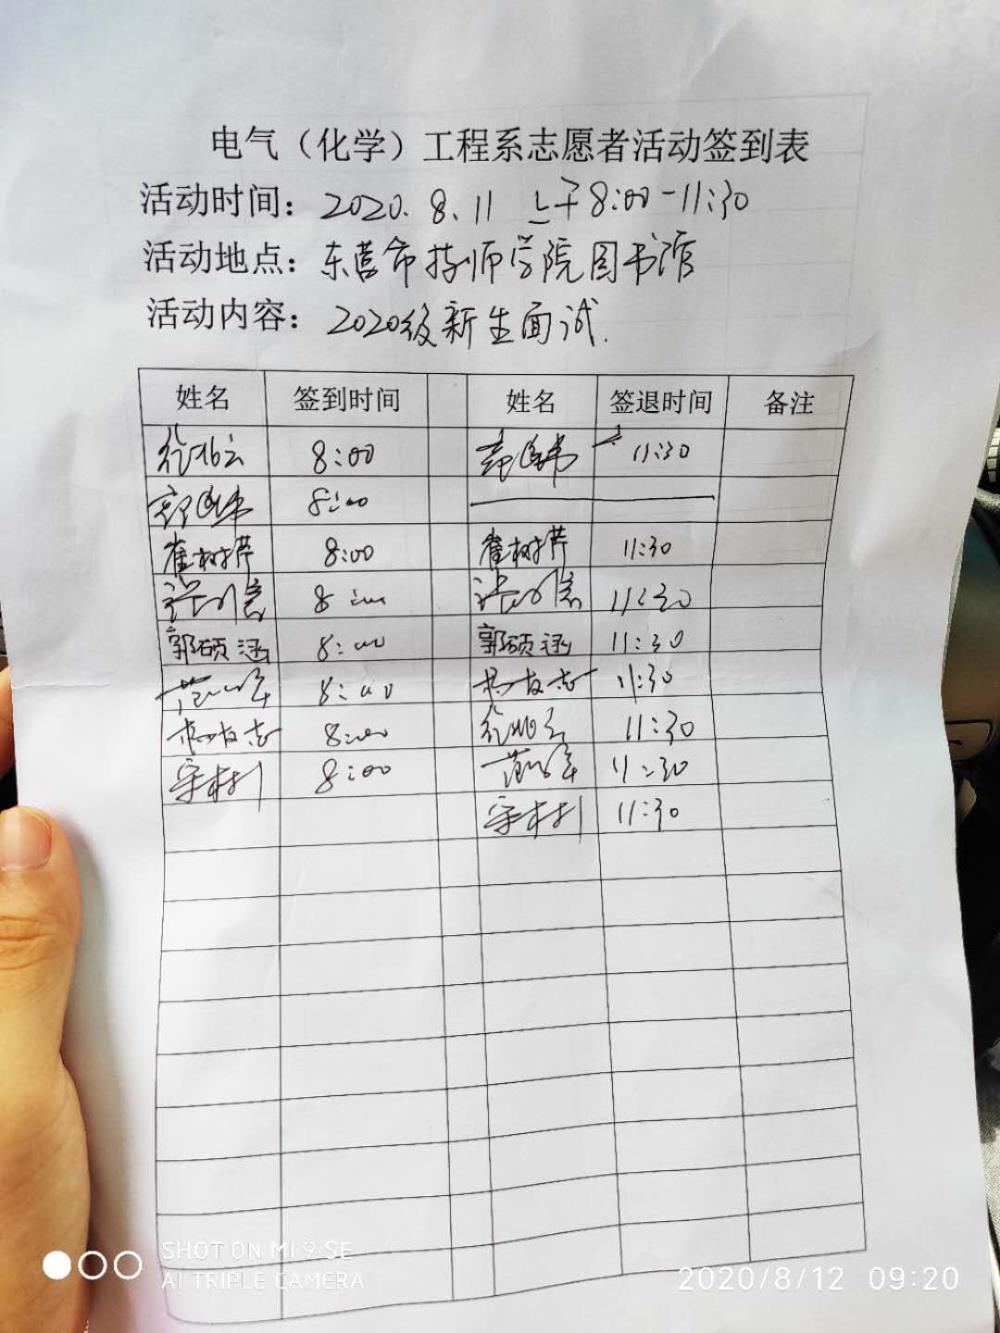 电气（化学）工程系志愿者活动签到表
活动时间：2020.8.11 上午8:00-11:30
活动地点：东营市技师学院图书馆
活动内容：2020级新生面试.
姓名 签到时间 姓名 签退时间 备注
8:00 11:30
8:00
崔树芹 8:00 崔树芹 11:30
8:00 11:30
郭硕涵 8:00 郭硕涵 11:30
8:00 11:30
8:00 11:30
8:00 11:30
11:30
SHOT ON MI 9 SE
AI TRIPLE CAMERA
2020/8/12 09:20